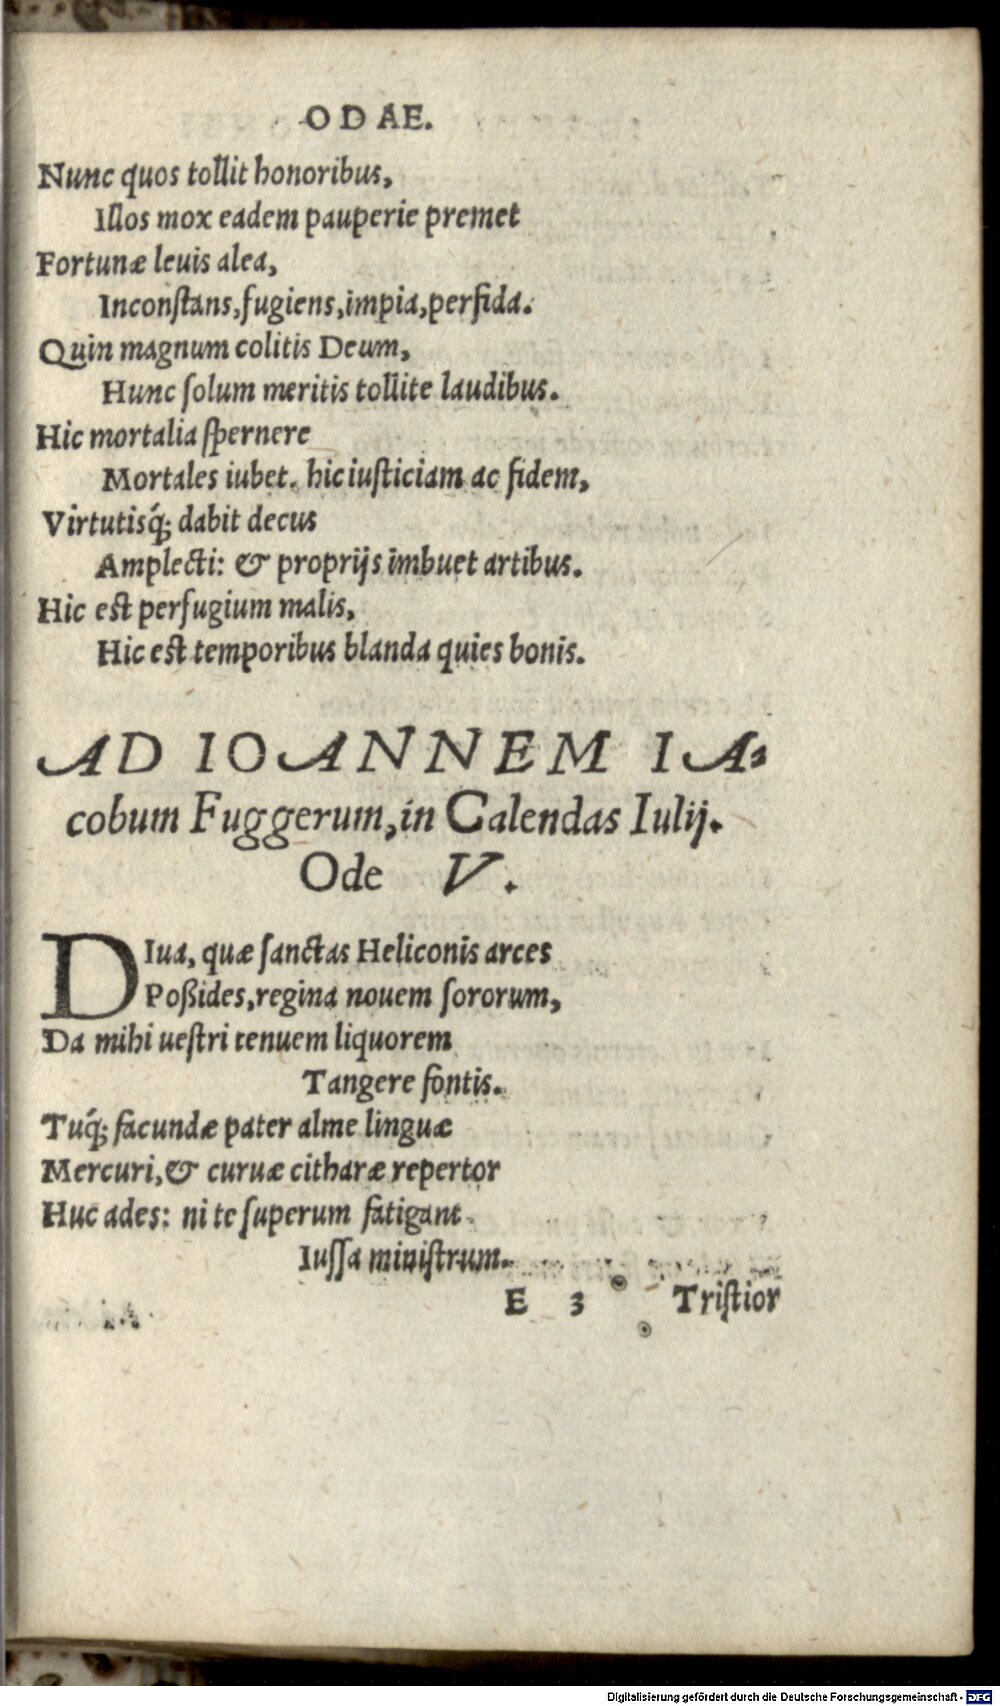 ODAE.
Nunc quos tollit honoribus,
Illos mox eadem pauperie premet
Fortunæ leuis alea,
Inconſtans, fugiens, impia, perfida.
Quin magnum colitis Deum,
Hunc ſolum meritis tollite laudibus.
Hic mortalia ſpernere
Mortales iubet. hic iuſticiam ac fidem,
Virtutisq́; dabit decus
Amplecti: & proprijs imbuet artibus.
Hic est perfugium malis,
Hic est temporibus blanda quies bonis.
AD IOANNEM IA-
cobum Fuggerum, in Calendas Iulij.
Ode V.
DIua, quæ ſanctas Heliconis arces
Poßides, regina nouem ſororum,
Da mihi ueſtri tenuem liquorem
Tangere fontis.
Tuq́; facundæ pater alme linguæ
Mercuri, & curuæ citharæ repertor
Huc ades: ni te ſuperum fatigant
Iuſſa miniſtrum.
E 3 Triſtior
Digitalisierung gefördert durch die Deutsche Forschungsgemeinschaft - DFG